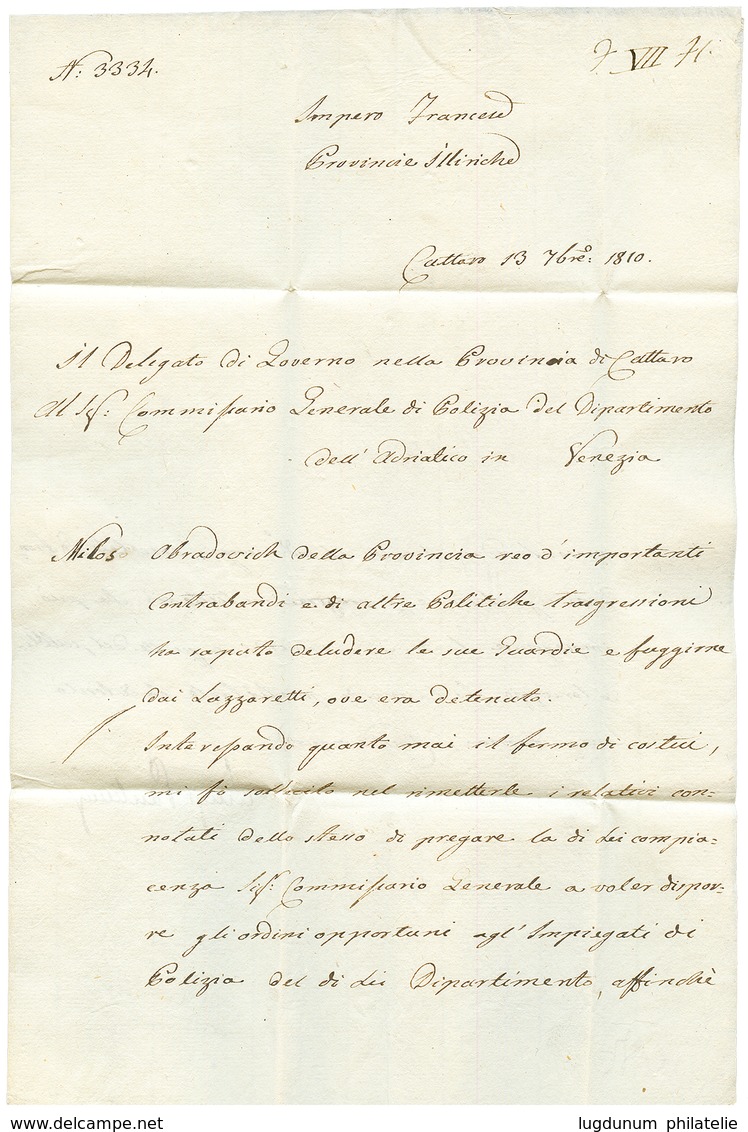 N: 3334.
VII
Impero Francese
Provincie Illiriche
Cattaro 13 7bre: 1810.
Il Delegato di Governo nella Provincia di Cattaro
Al Sig: Commissario Generale di Polizia del Dipartimento
dell' Adriatico in Venezia
Milos Obradovich della Provincia reo d'importanti
Contrabandi e di altre Politiche trasgressioni
ha saputo deludere le sue Guardie e fuggirne
dai Lazzaretti, ove era detenuto.
Interessando quanto mai il fermo di costui,
mi fò sollicito nel rimetterle i relativi con=
notati dello stesso di pregare la di Lei compia=
cenza Sig: Commissario Generale a voler dispor=
re gli ordini opportuni agl' Impiegati di
Polizia del di Lei Dipartimento, affinchè
www.delcampe.net
lugdunum philatelie